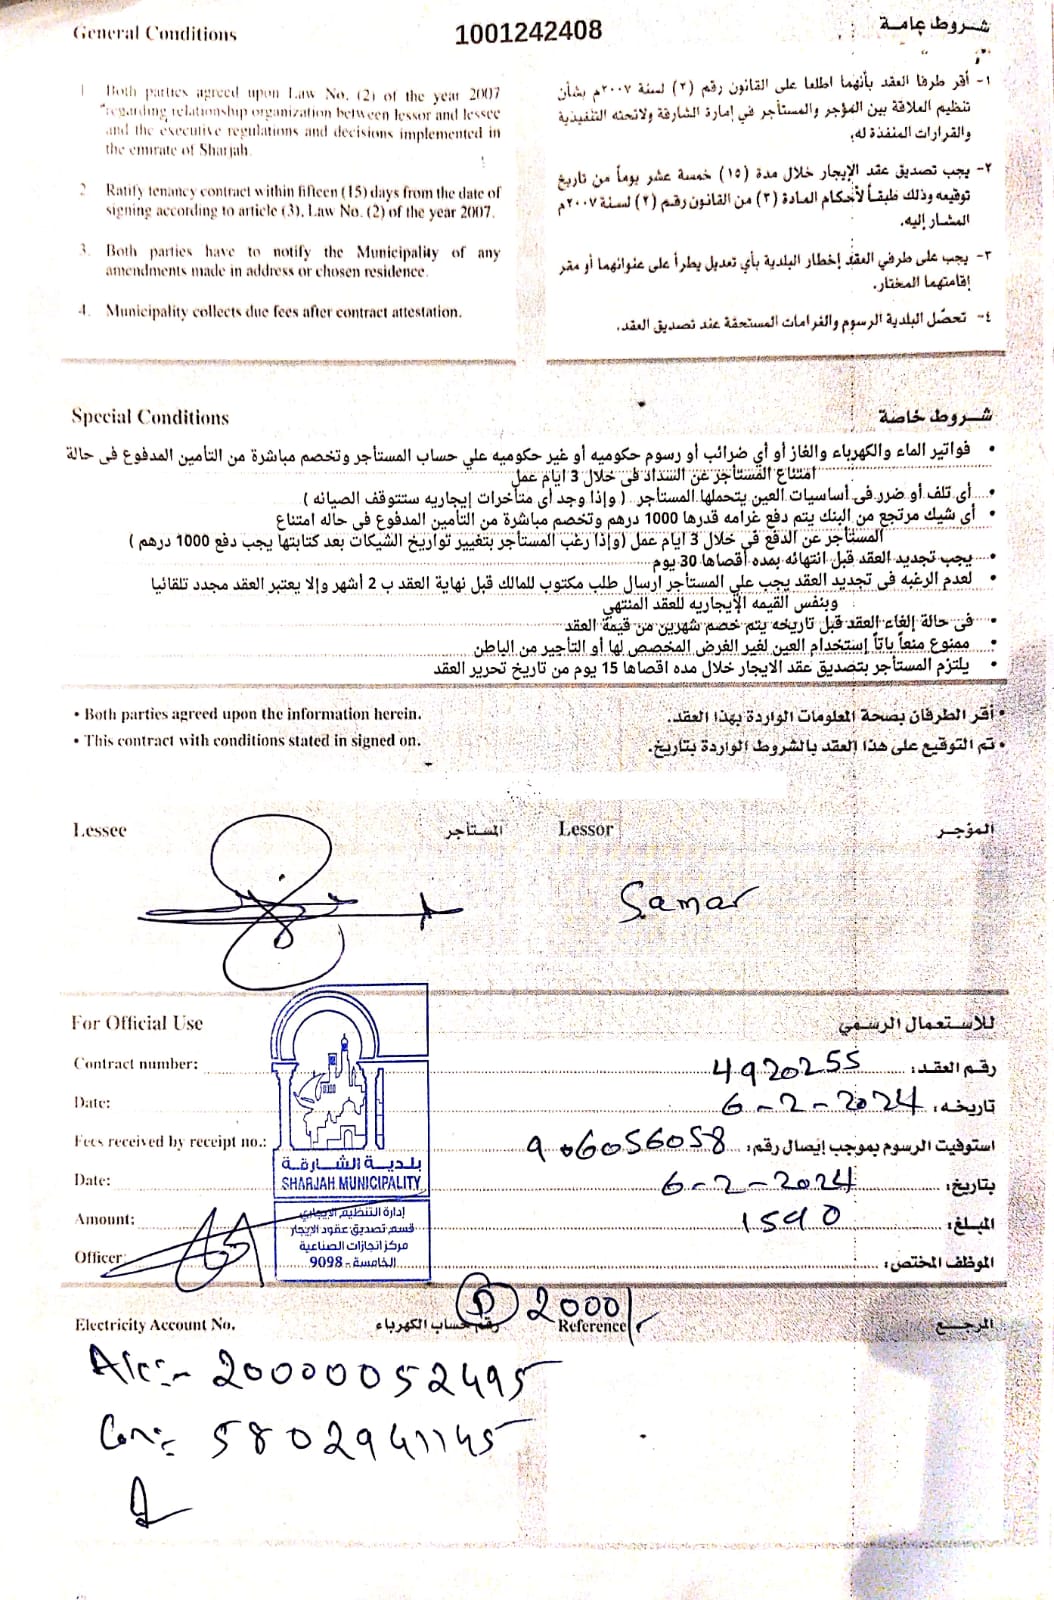 General Conditions
1001242408
شروط عامة
1 Both parties agreed upon Law No. (2) of the year 2007
regarding relationship organization between lessor and lessee
and the executive regulations and decisions implemented in
the emirate of Sharjah.
2 Ratify tenancy contract within fifteen (15) days from the date of
signing according to article (3), Law No. (2) of the year 2007.
3. Both parties have to notify the Municipality of any
amendments made in address or chosen residence.
4. Municipality collects due fees after contract attestation.
١- أقر طرفا العقد بأنهما اطلعا على القانون رقم (٢) لسنة ٢٠٠٧م بشأن
تنظيم العلاقة بين المؤجر والمستأجر في إمارة الشارقة ولائحته التنفيذية
والقرارات المنفذة له.
٢- يجب تصديق عقد الإيجار خلال مدة (١٥) خمسة عشر يوماً من تاريخ
توقيعه وذلك طبقاً لأحكام المادة (٣) من القانون رقم (٢) لسنة ٢٠٠٧م
المشار إليه.
٣- يجب على طرفي العقد إخطار البلدية بأي تعديل يطرأ على عنوانهما أو مقر
إقامتهما المختار.
٤- تحصّل البلدية الرسوم والغرامات المستحقة عند تصديق العقد.
Special Conditions
شروط خاصة
• فواتير الماء والكهرباء والغاز أو أي ضرائب أو رسوم حكوميه أو غير حكوميه علي حساب المستأجر وتخصم مباشرة من التأمين المدفوع فى حالة
امتناع المستأجر عن السداد فى خلال 3 ايام عمل
• أى تلف أو ضرر فى أساسيات العين يتحملها المستأجر ( وإذا وجد أى متأخرات إيجاريه ستتوقف الصيانه )
• أى شيك مرتجع من البنك يتم دفع غرامه قدرها 1000 درهم وتخصم مباشرة من التأمين المدفوع فى حاله امتناع
المستأجر عن الدفع في خلال 3 ايام عمل (وإذا رغب المستأجر بتغيير تواريخ الشيكات بعد كتابتها يجب دفع 1000 درهم )
• يجب تجديد العقد قبل انتهائه بمده أقصاها 30 يوم
• لعدم الرغبه فى تجديد العقد يجب علي المستأجر ارسال طلب مكتوب للمالك قبل نهاية العقد ب 2 أشهر وإلا يعتبر العقد مجدد تلقائيا
وبنفس القيمه الإيجاريه للعقد المنتهي
• فى حالة إلغاء العقد قبل تاريخه يتم خصم شهرين من قيمة العقد
• ممنوع منعاً باتاً إستخدام العين لغير الغرض المخصص لها أو التأجير من الباطن
• يلتزم المستأجر بتصديق عقد الايجار خلال مده اقصاها 15 يوم من تاريخ تحرير العقد
• Both parties agreed upon the information herein.
• أقر الطرفان بصحة المعلومات الواردة بهذا العقد.
• This contract with conditions stated in signed on.
• تم التوقيع على هذا العقد بالشروط الواردة بتاريخ.
Lessee المستأجر Lessor المؤجر
Samar
For Official Use للاستعمال الرسمي
Contract number: 4920255 رقم العقد:
Date: 6-2-2024 تاريخه:
Fees received by receipt no.: 906056058 استوفيت الرسوم بموجب إيصال رقم:
Date: 6-2-2024 بتاريخ:
Amount: 1590 المبلغ:
Officer: الموظف المختص:
بلدية الشارقة
SHARJAH MUNICIPALITY
إدارة التنظيم الإيجاري
قسم تصديق عقود الإيجار
مركز انجازات الصناعية
الخامسة - 9098
D 2000/-
Electricity Account No. رقم حساب الكهرباء Reference المرجع
A/c:- 20000052495
Con:- 5802941145